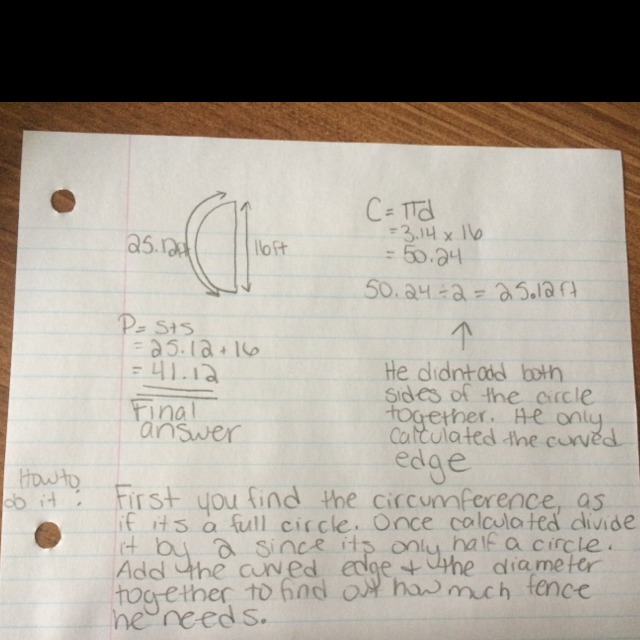 C = πd
= 3.14 x 16
= 50.24
50.24 ÷ 2 = 25.12ft
25.12
16ft
P = s+s
= 25.12 + 16
= 41.12
Final
answer
He didnt add both
sides of the circle
together. He only
calculated the curved
edge
How to
do it?
First you find the circumference, as
if its a full circle. Once calculated divide
it by 2 since its only half a circle.
Add the curved edge + the diameter
together to find out how much fence
he needs.